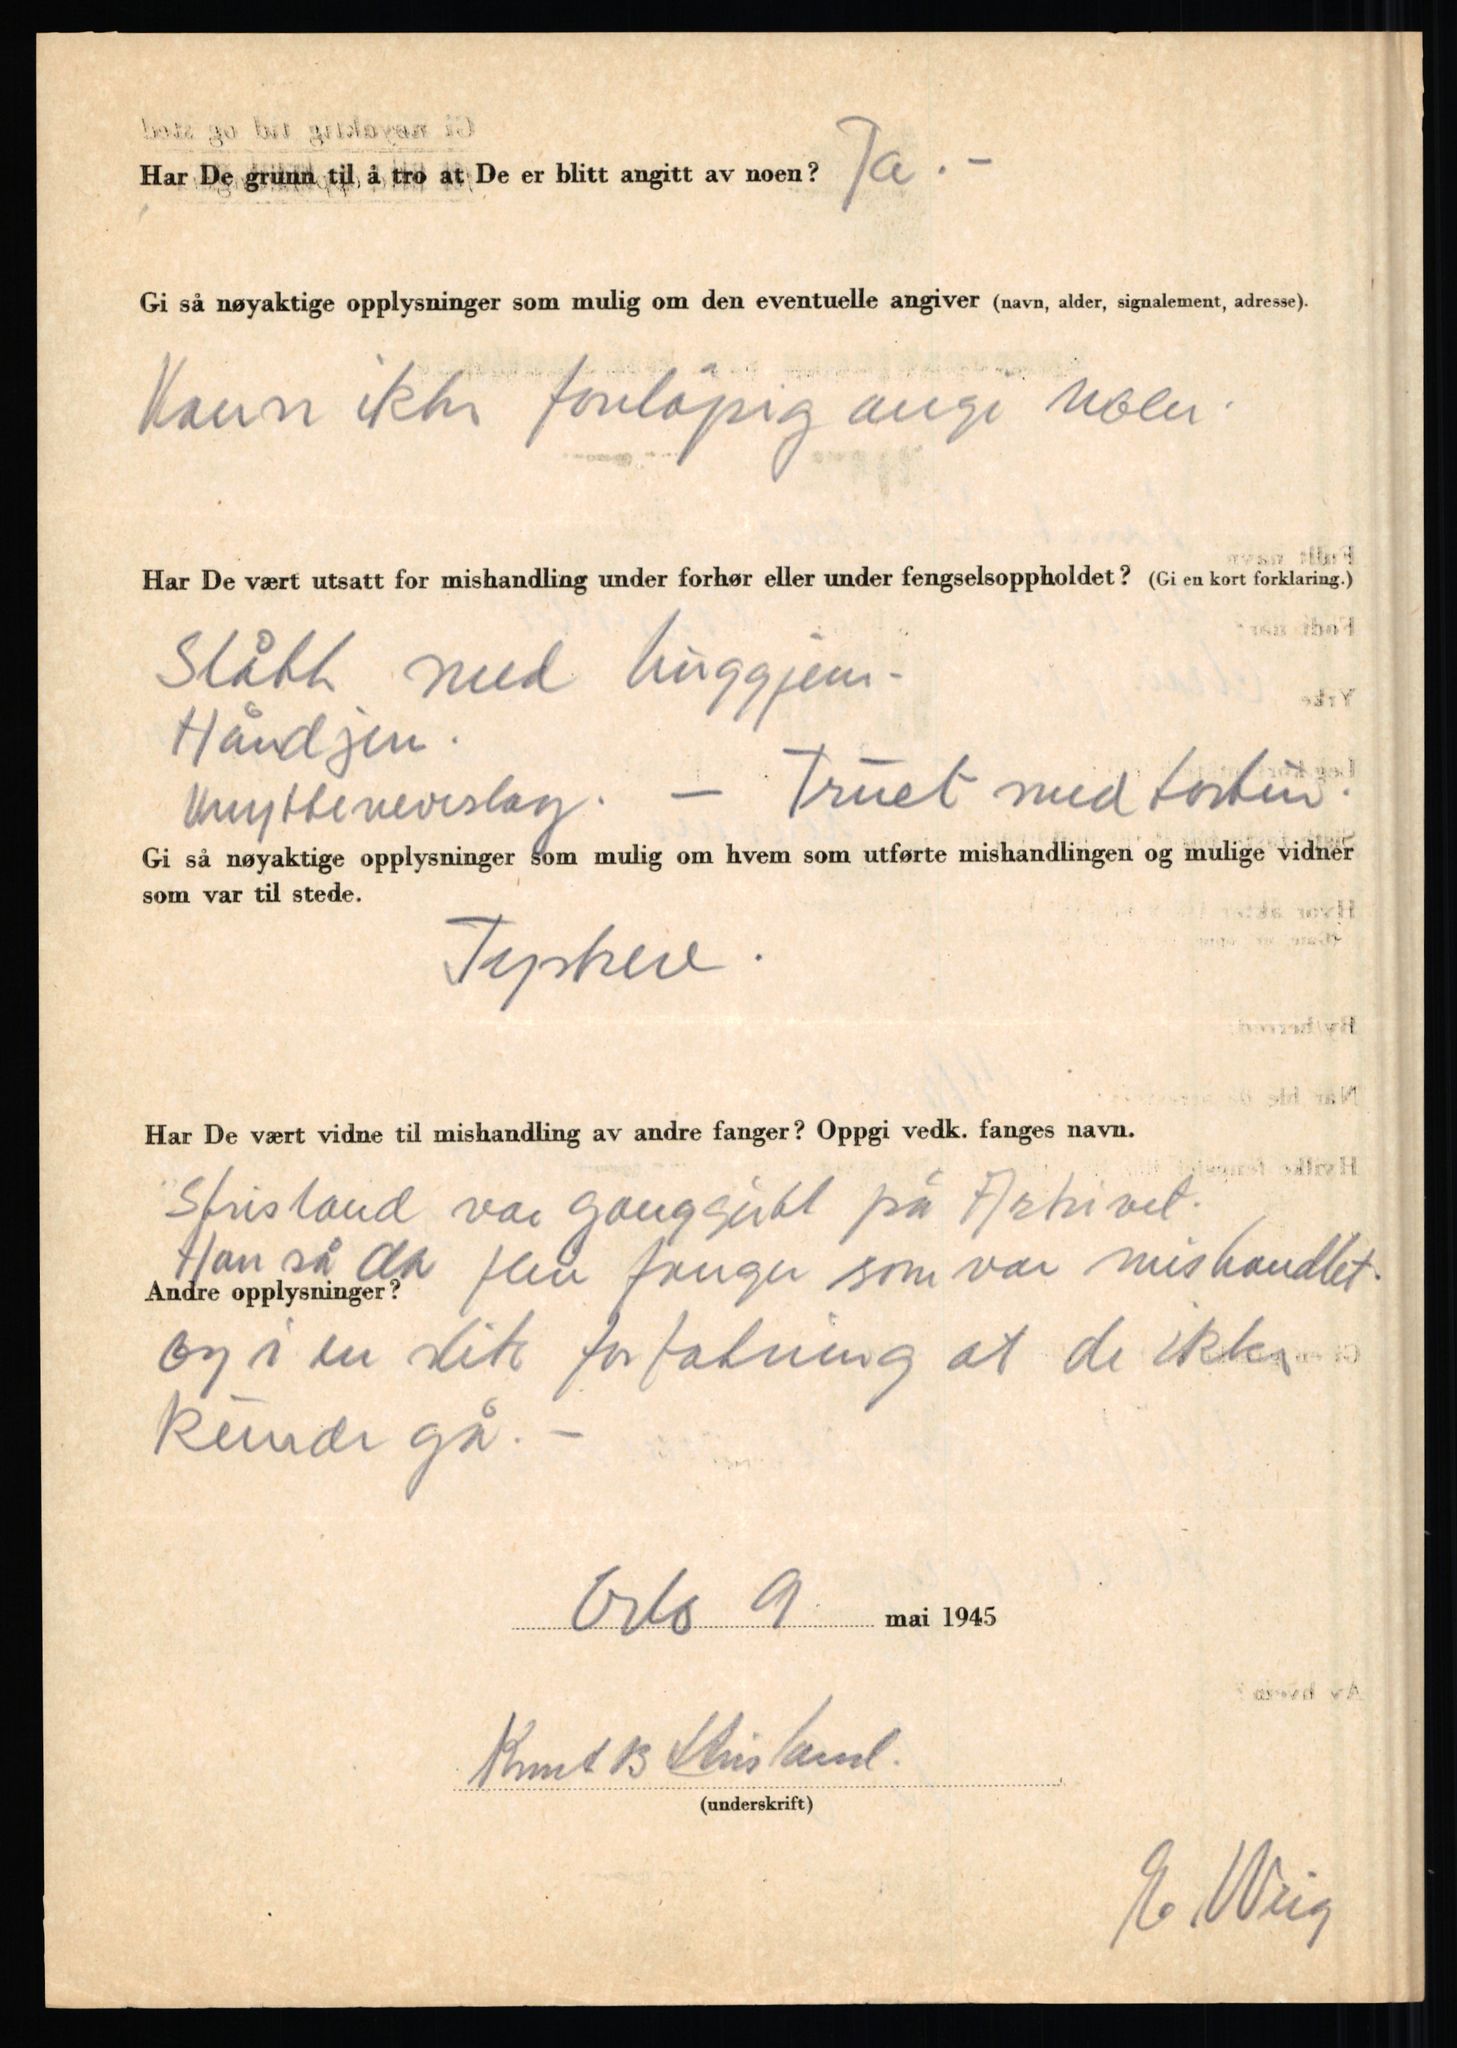 Har De grunn til å tro at De er blitt angitt av noen? Ja. -
Gi så nøyaktige opplysninger som mulig om den eventuelle angiver (navn, alder, signalement, adresse).
Kann ikke foreløpig angi noen.
Har De vært utsatt for mishandling under forhør eller under fengselsoppholdet? (Gi en kort forklaring.)
Slått med
Håndjern.
Knyttneveslag. — Truet med tortur.
Gi så nøyaktige opplysninger som mulig om hvem som utførte mishandlingen og mulige vidner
som var til stede.
Tyskere.
Har De vært vidne til mishandling av andre fanger? Oppgi vedk. fanges navn.
Strisland var ganggutt på Arkivet.
Han så da flere fanger som var mishandlet.
Andre opplysninger?
og i en slik forfatning at de ikke
kunde gå. -
Oslo 9. mai 1945
Knut B Strisland.
(underskrift)
E. Wiig